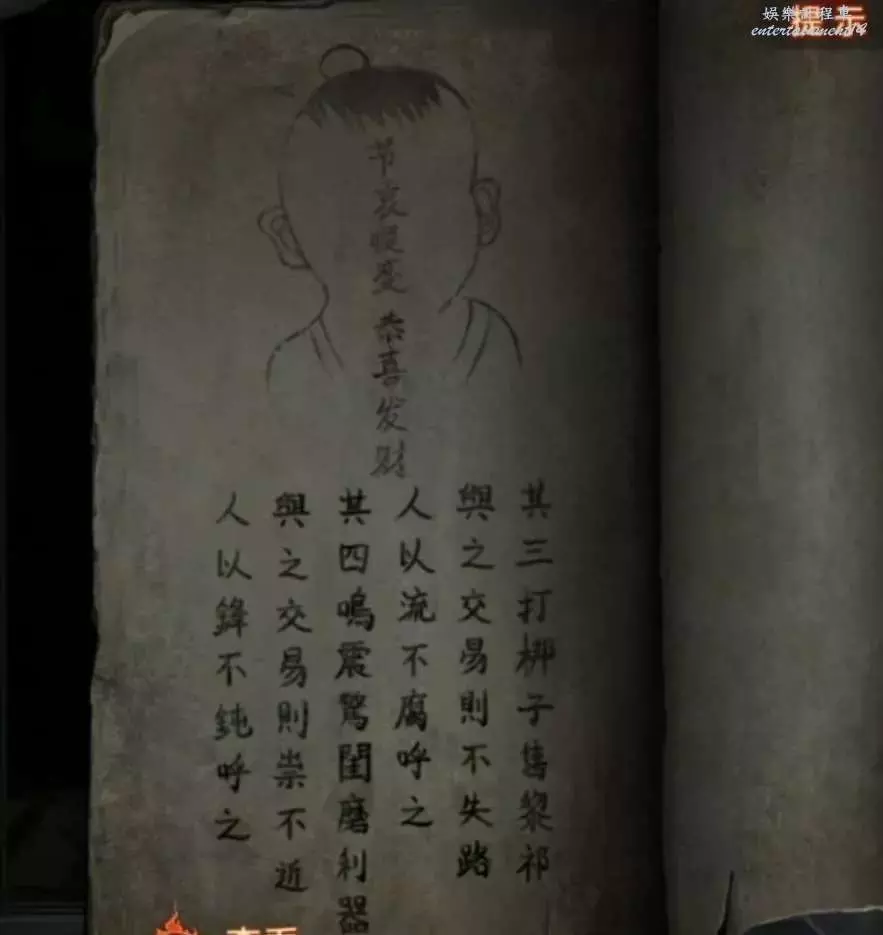 娛樂工程車
entertainment14
提示
节哀顺变
恭喜发财
其三打梆子售黎祁
與之交易則不失路
人以流不腐呼之
其四鳴震驚閨磨利器
與之交易則祟不近
人以鋒不鈍呼之